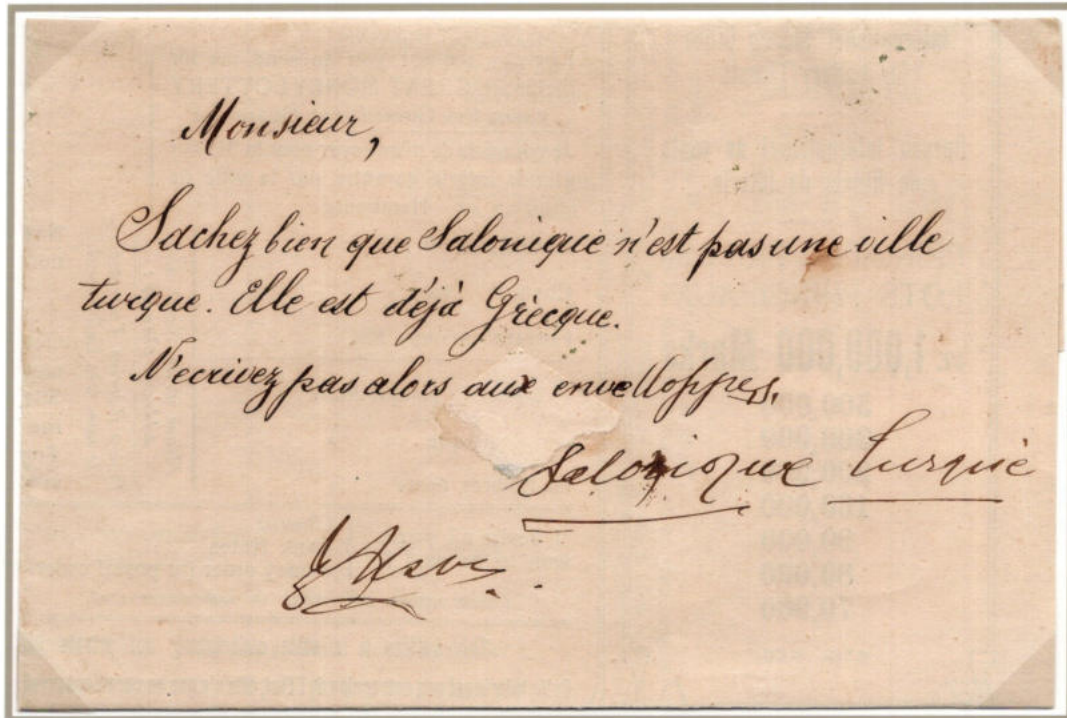 Monsieur,
Sachez bien que Salonique n'est pas une ville
turque. Elle est déjà Grècque.
N'ecrivez pas alors aux envelloppes,
Salonique Turquie